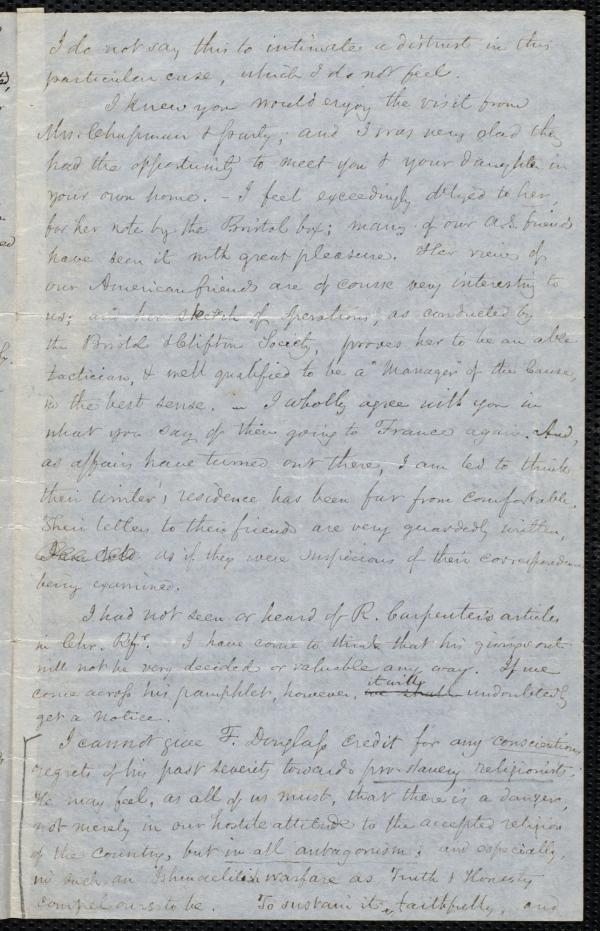 I do not say this to intimate a distrust in this
particular case, which I do not feel.
I knew you would enjoy the visit from
Mrs. Chapman & party; and I was very glad they
had the opportunity to meet you & your daughter in
your own home. – I feel exceedingly obliged to her,
for her note by the Bristol box; many of our A.S. friends
have seen it with great pleasure. Her views of
our American friends are of course very interesting to
us; and her sketch of operations, as conducted by
the Bristol & Clifton Society, proves her to be an able
tactician, & well qualified to be a "Manager" of the Cause,
in the best sense. – I wholly agree with you in
what you say of their going to France again. And,
as affairs have turned out there, I am led to think
their winter's residence has been far from comfortable.
Their letters to their friends are very guardedly written,
as if they were suspicious of their correspondence
being examined.
I had not seen or heard of R. Carpenter's articles
in Chr. Refr. I have come to think that his givings out
will not be very decided or valuable any way. If we
come across his pamphlet, however, it will undoubtedly
get a notice.
I cannot give F. Douglass credit for any conscientious
regrets of his past severity towards pro-slavery religionists.
He may feel, as all of us must, that there is a danger,
not merely in our hostile attitude to the accepted religion
of the country, but in all antagonism; and especially
in such an Ishmaelitish warfare as Truth & Honesty
compel ours to be. To sustain it, faithfully, and